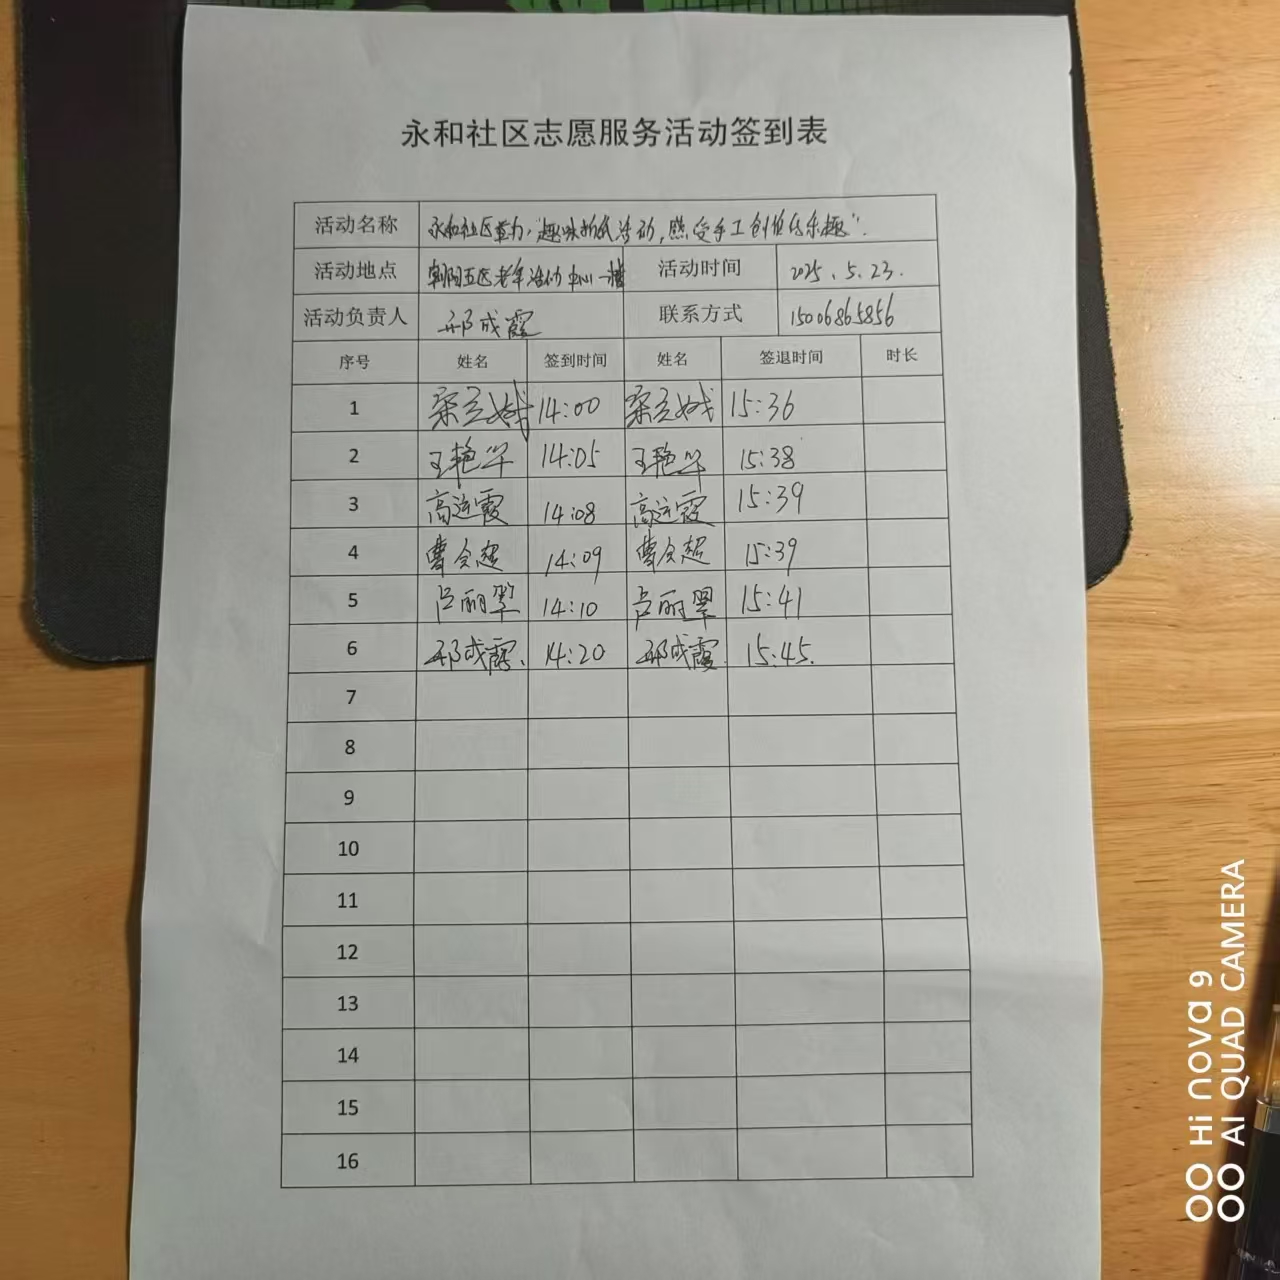 永和社区志愿服务活动签到表
活动名称 永和社区 "趣味 活动,感受手工创造乐趣".
活动地点 朝阳五区老年活动中心一楼 活动时间 2025.5.23.
活动负责人 邢成霞 联系方式 15006865856
序号 姓名 签到时间 姓名 签退时间 时长
1 14:00 15:36
2 王艳华 14:05 王艳华 15:38
3 高运霞 14:08 高运霞 15:39
4 曹会超 14:09 曹会超 15:39
5 卢丽翠 14:10 卢丽翠 15:41
6 邢成霞. 14:20 邢成霞. 15:45.
7
8
9
10
11
12
13
14
15
16
Hi nova 9
AI QUAD CAMERA